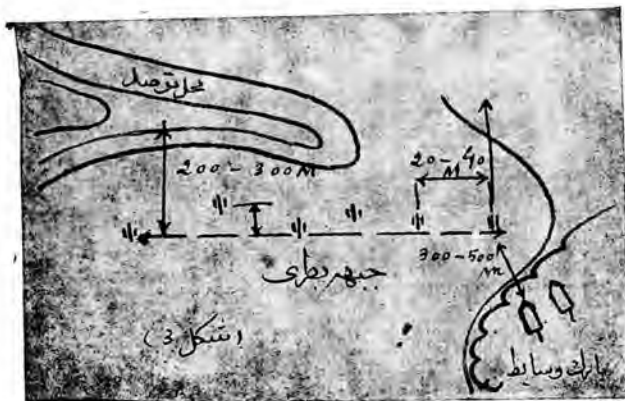 محل ترصد
200-300M
20-40
M
300-500
m
جبهه بطری
(شکل 3)
پارک وسایط